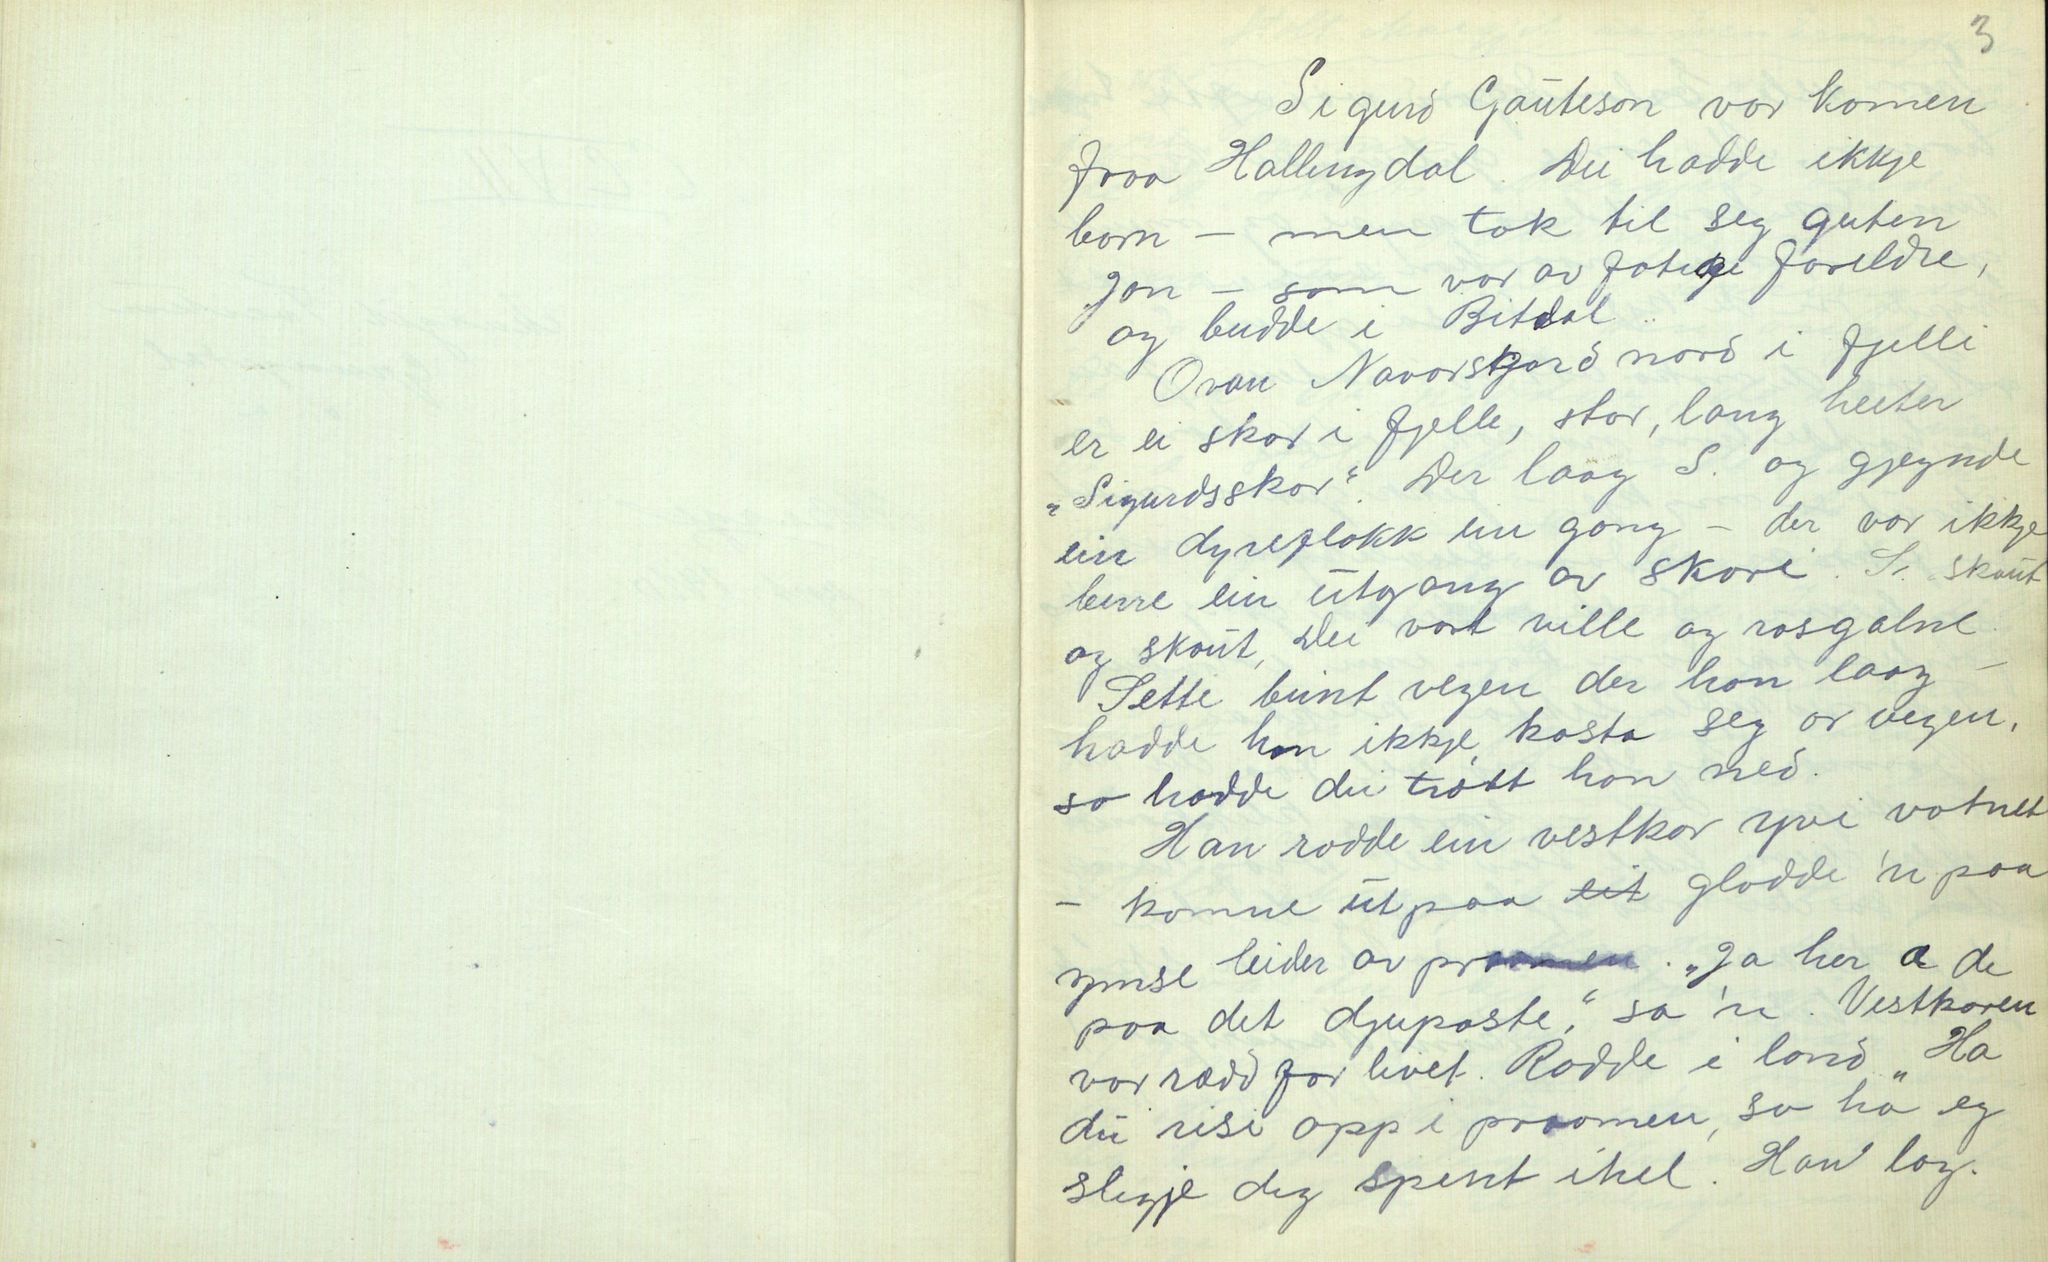 3
Sigurd Gauteson var komen
fraa Hallingdal. Dei hadde ikkje
born – men tok til seg guten
Jon – som var av fatige foreldre,
og budde i Bitdal.
Ovan Navarsgard nord i fjelli
er ei skor i fjelle, stor, lang heeter
„Sigurdsskor“. Der laag S. og gjegnde
ein dyreflokk ein gong – der var ikkje
berre ein utgang av skori. S. skaut
og skaut, Dei vart ville og rasgalne.
Sette beint vegen der han laag –
hadde han ikkje kasta seg or vegen,
so hadde dei trøtt han ned.
Han rodde ein vestkar yvi vatnet
– komne utpaa eit gladde 'n paa
ymse leider av praamen. „Ja her a de
paa det djupaste,“ sa 'n. Vestkaren
var rædd for livet. Rodde i land „Ha
du risi opp i praamen, so ha eg
slegje deg spent ihel. Han laag.